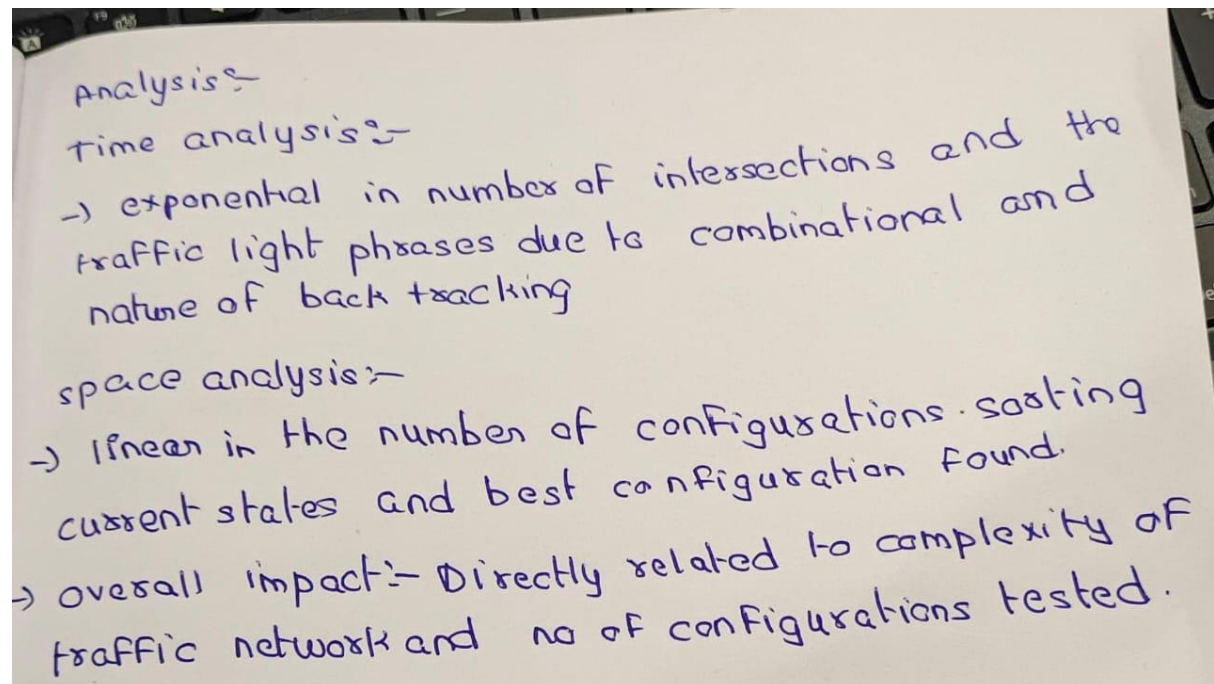 Analysis:-
Time analysis:-
→ exponential in number of intersections and the
traffic light phrases due to combinational and
nature of back tracking
space analysis:-
→ linear in the number of configurations. sorting
current states and best configuration found.
→ overall impact:- Directly related to complexity of
traffic network and no of configurations tested.